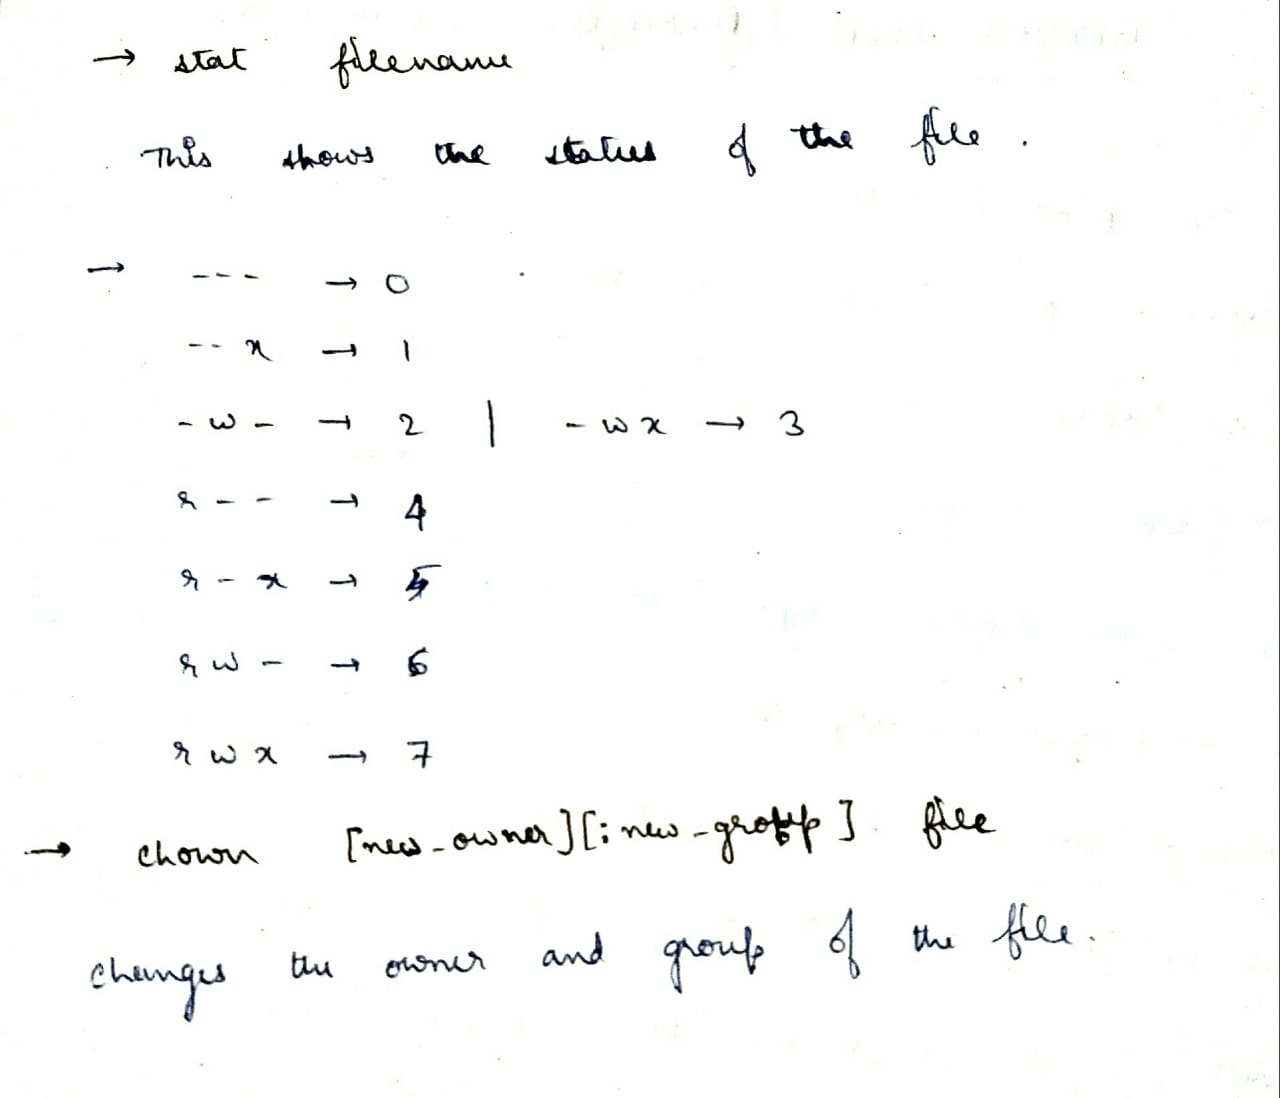 → stat filename
This shows the status of the file.
→ --- → 0
--x → 1
-w- → 2 | -wx → 3
r-- → 4
r-x → 5
rw- → 6
rwx → 7
→ chown [new-owner][:new-group] file
changes the owner and group of the file.